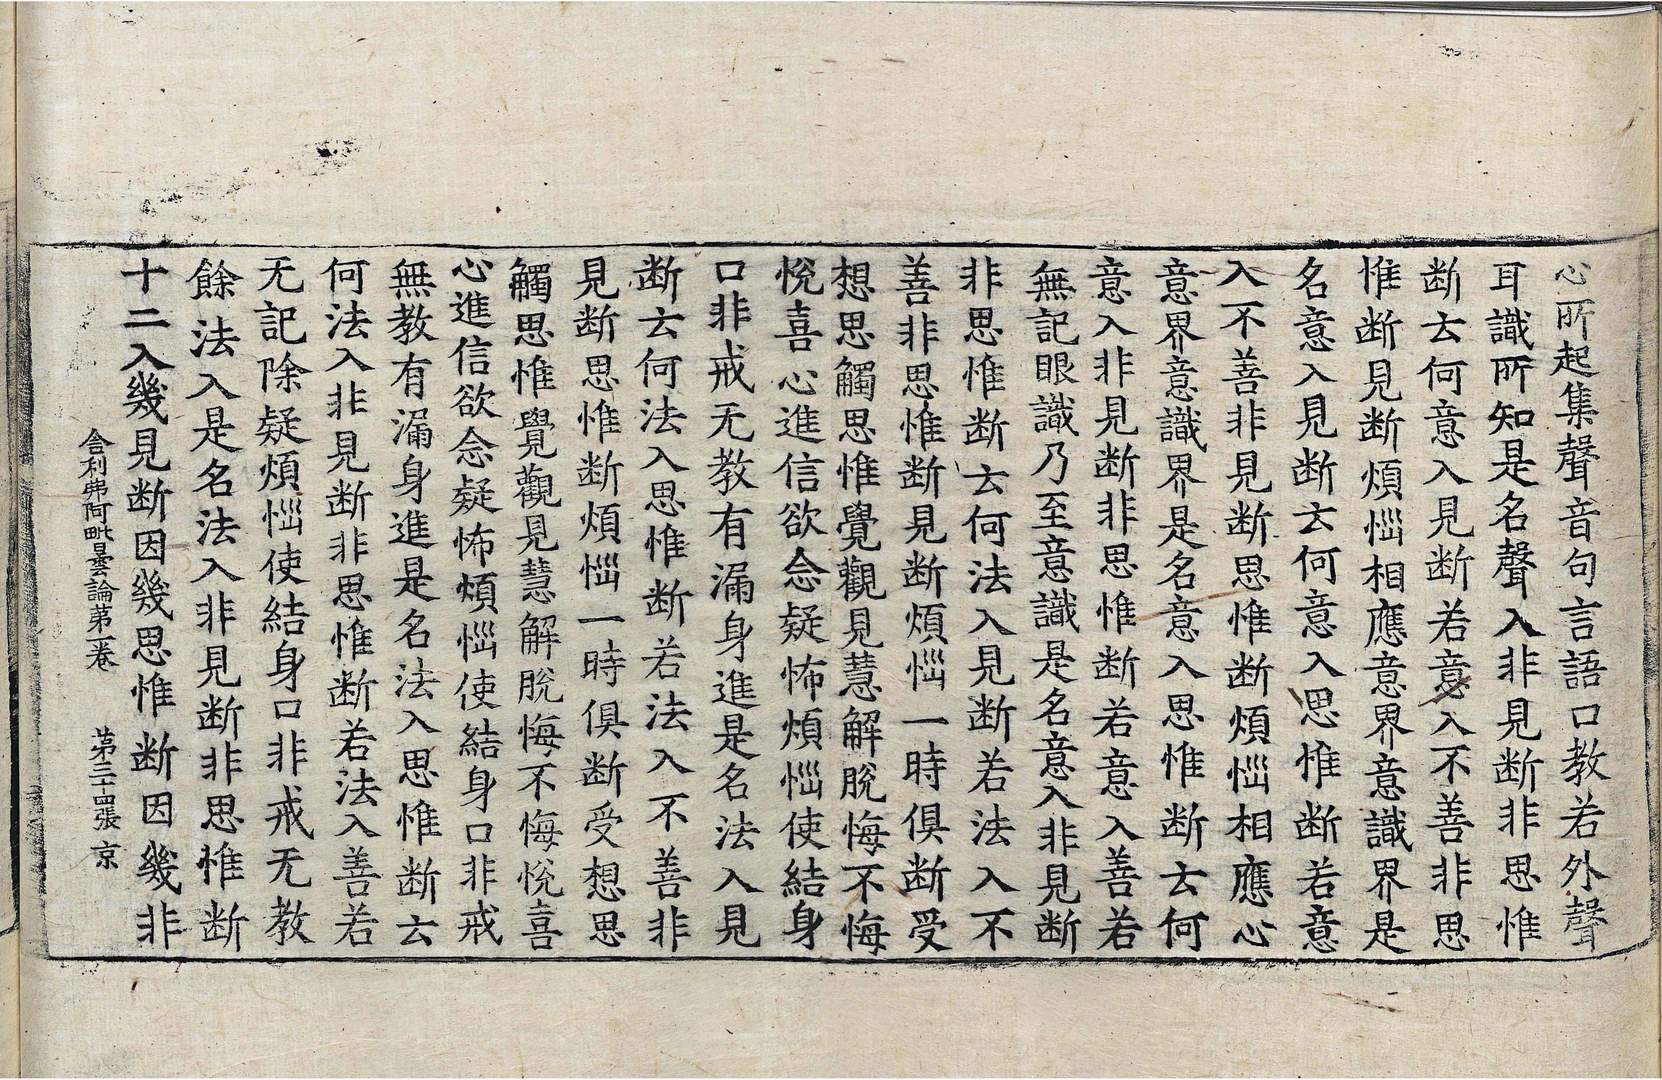 心所起集聲音句言語口教若外聲
耳識所知是名聲入非見断非思惟
断云何意入見断若意入不善非思
惟断見断煩惱相應意界意識界是
名意入見断云何意入思惟断若意
入不善非見断思惟断煩惱相應心
意界意識界是名意入思惟断云何
意入非見断非思惟断若意入善若
無記眼識乃至意識是名意入非見断
非思惟断云何法入見断若法入不
善非思惟断見断煩惱一時俱断受
想思觸思惟覺觀見慧解脫悔不悔
悅喜心進信欲念疑怖煩惱使結身
口非戒无教有漏身進是名法入見
断云何法入思惟断若法入不善非
見断思惟断煩惱一時俱断受想思
觸思惟覺觀見慧解脫悔不悔悅喜
心進信欲念疑怖煩惱使結身口非戒
無教有漏身進是名法入思惟断云
何法入非見断非思惟断若法入善若
无記除疑煩惱使結身口非戒无教
餘法入是名法入非見断非思惟断
十二入幾見断因幾思惟断因幾非
舍利弗阿毗曇論第一卷 第三十四張 京